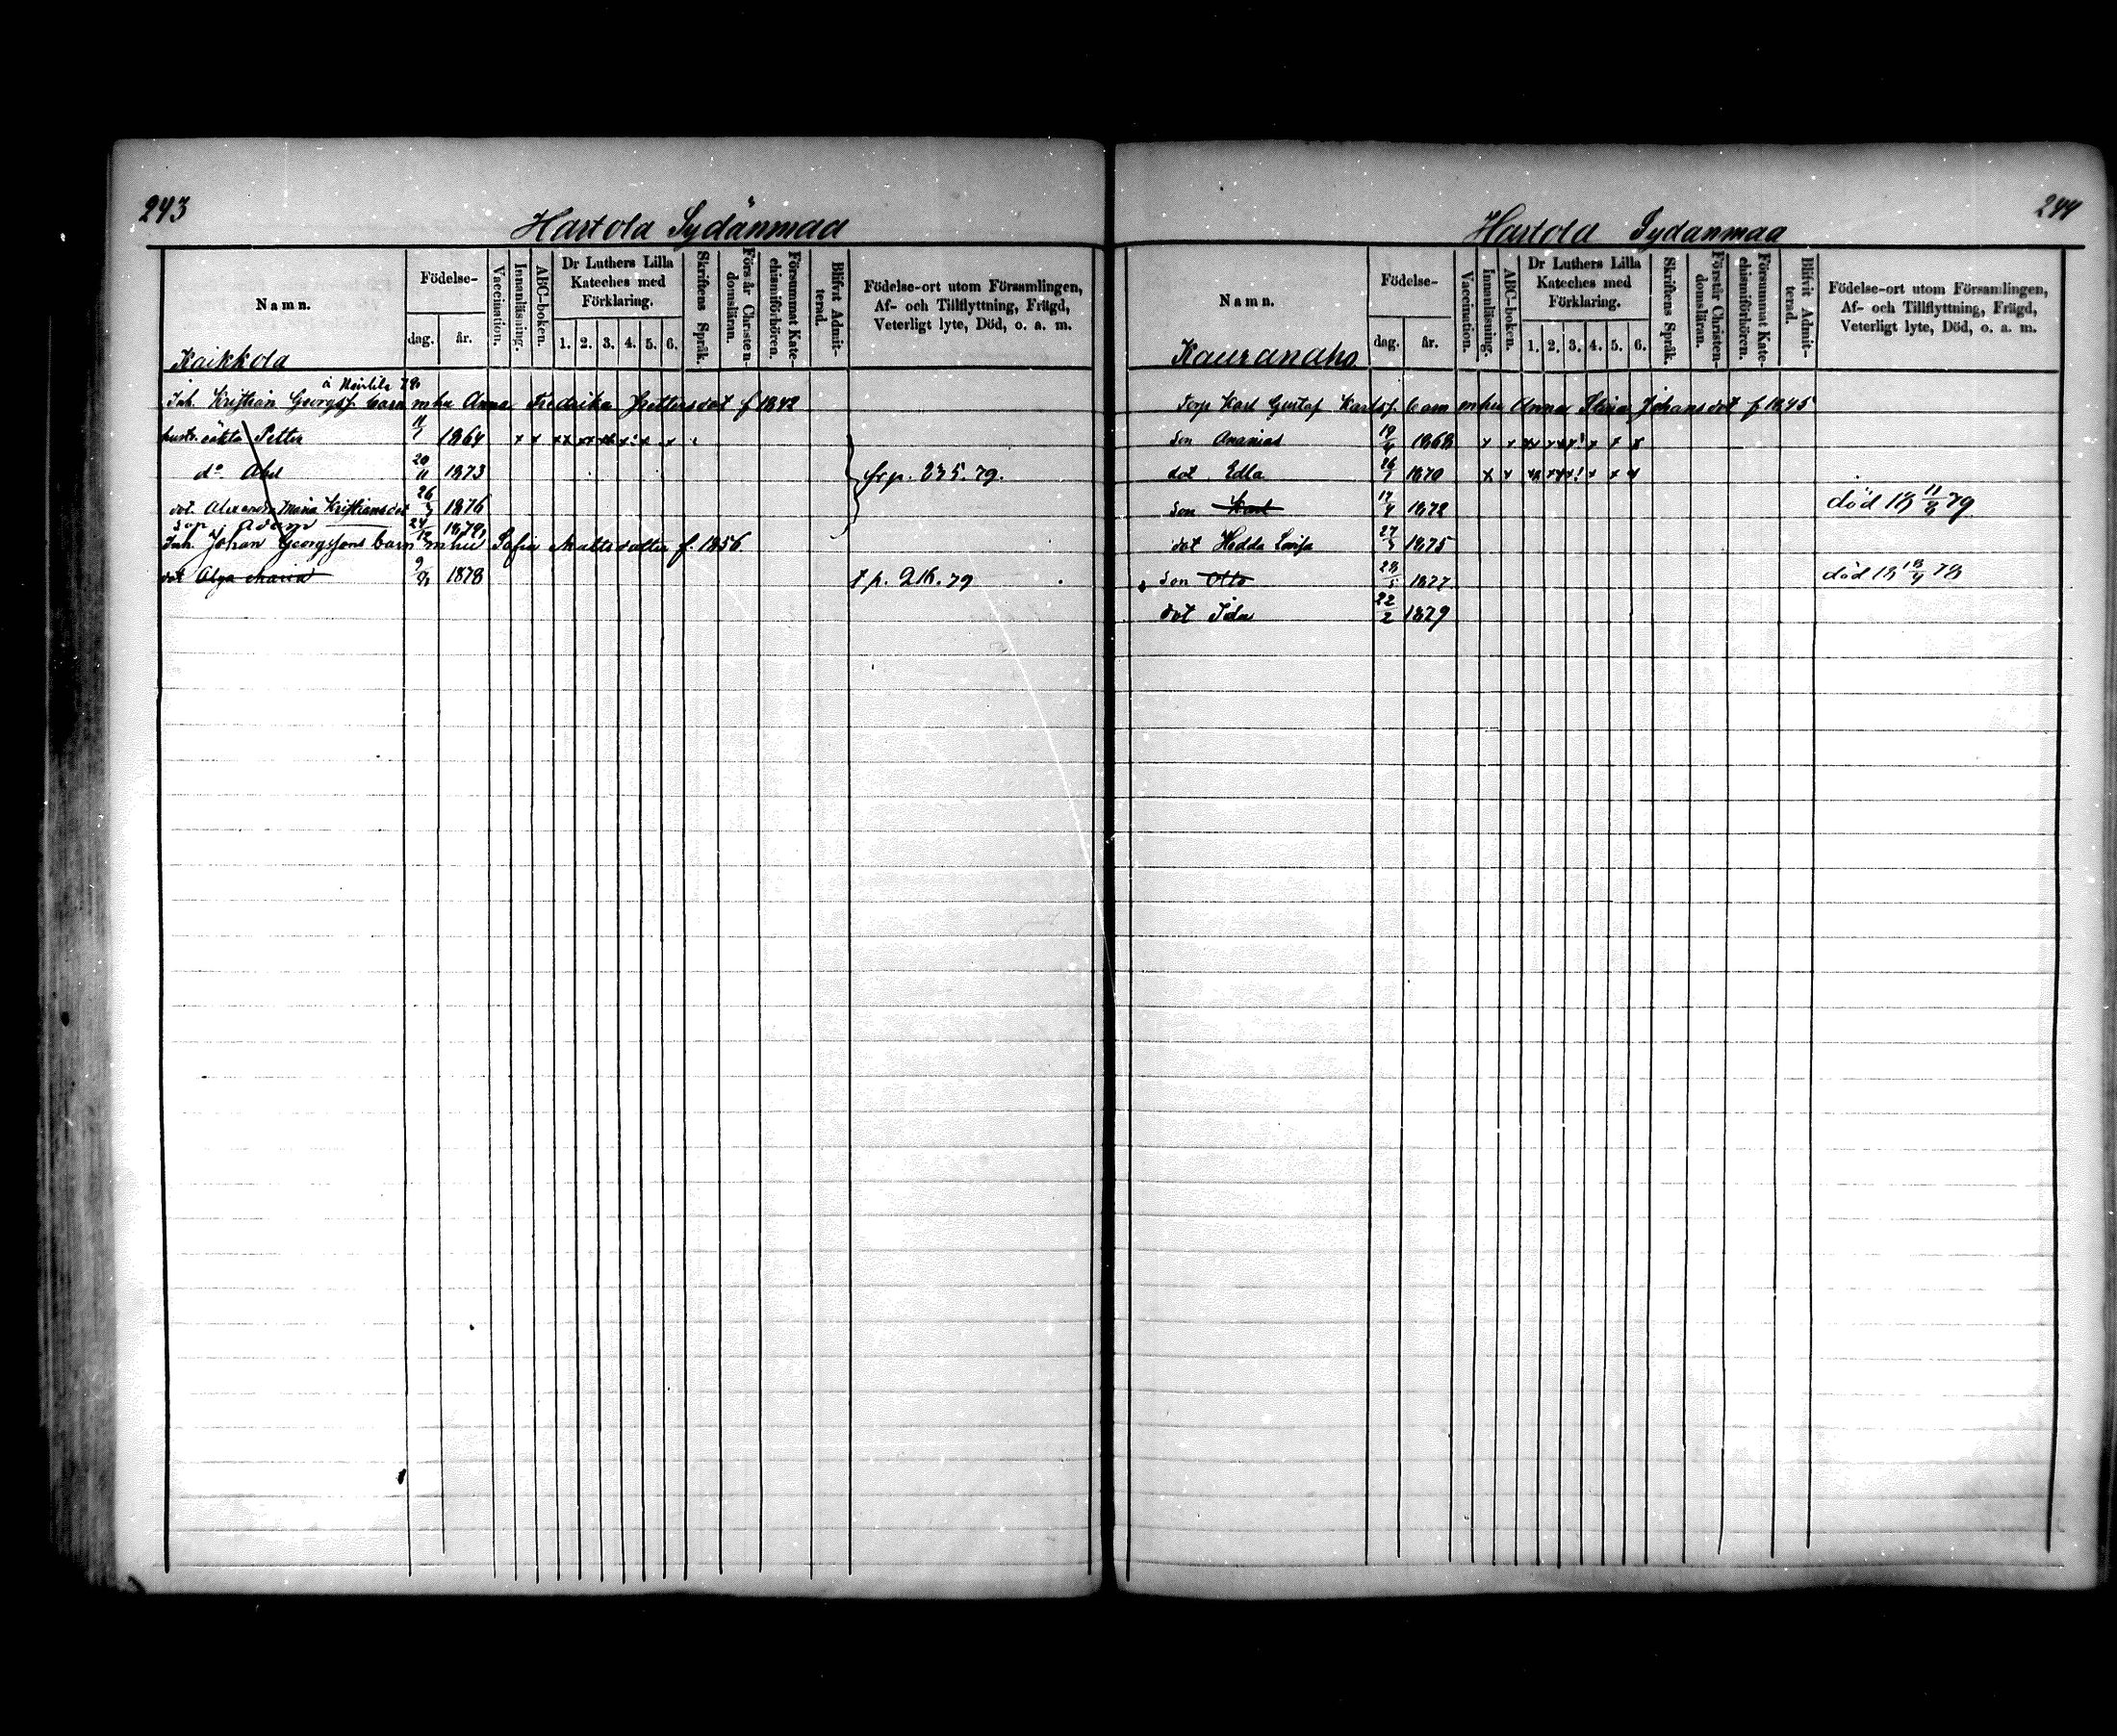 243
Hartola Sydänmaa
Namn.
Födelse-
dag.
år.
Vaccination.
Innanläsning.
ABC-boken.
Dr Luthers Lilla
Kateches med
Förklaring.
1. 2. 3. 4. 5. 6.
Skriftens Språk.
Förstår Christen-
domsläran.
Försummat Kate-
chismiförhören.
Blifvit Admit-
terad.
Födelse-ort utom Församlingen,
Af- och Tillflyttning, Frägd,
Veterligt lyte, Död, o. a. m.
Kaikkola
Inh. Kristian Georgsf. barn mhu Anna Fredrika Pettersdot f 1842
äkta Petter 1864
do Abel 20/11 1873
frp. 235. 79.
dot. Alexandra Maria Kristiansdot 1876
Adam 1879
Inh. Johan Georgssons barn mhu Sofia Mattsdotter f. 1856.
dot Alga Maria 1878
t p. 216. 79
244
Hartola Sydanmaa
Namn.
Födelse-
dag.
år.
Vaccination.
Innanläsning.
ABC-boken.
Dr Luthers Lilla
Kateches med
Förklaring.
1. 2. 3. 4. 5. 6.
Skriftens Språk.
Förstår Christen-
domsläran.
Försummat Kate-
chismiförhören.
Blifvit Admit-
terad.
Födelse-ort utom Församlingen,
Af- och Tillflyttning, Frägd,
Veterligt lyte, Död, o. a. m.
Kauranaho
Torp Karl Gustaf Karlsf. barn mhu Anna Stina Johansdot f 1845
son Ananias 1868
dot Edla 1870
son Karl 1872 död 18 79
dot Hedda Lovisa 1875
son Otto 28/5 1877 död 18 78
dot Ida 22/2 1879